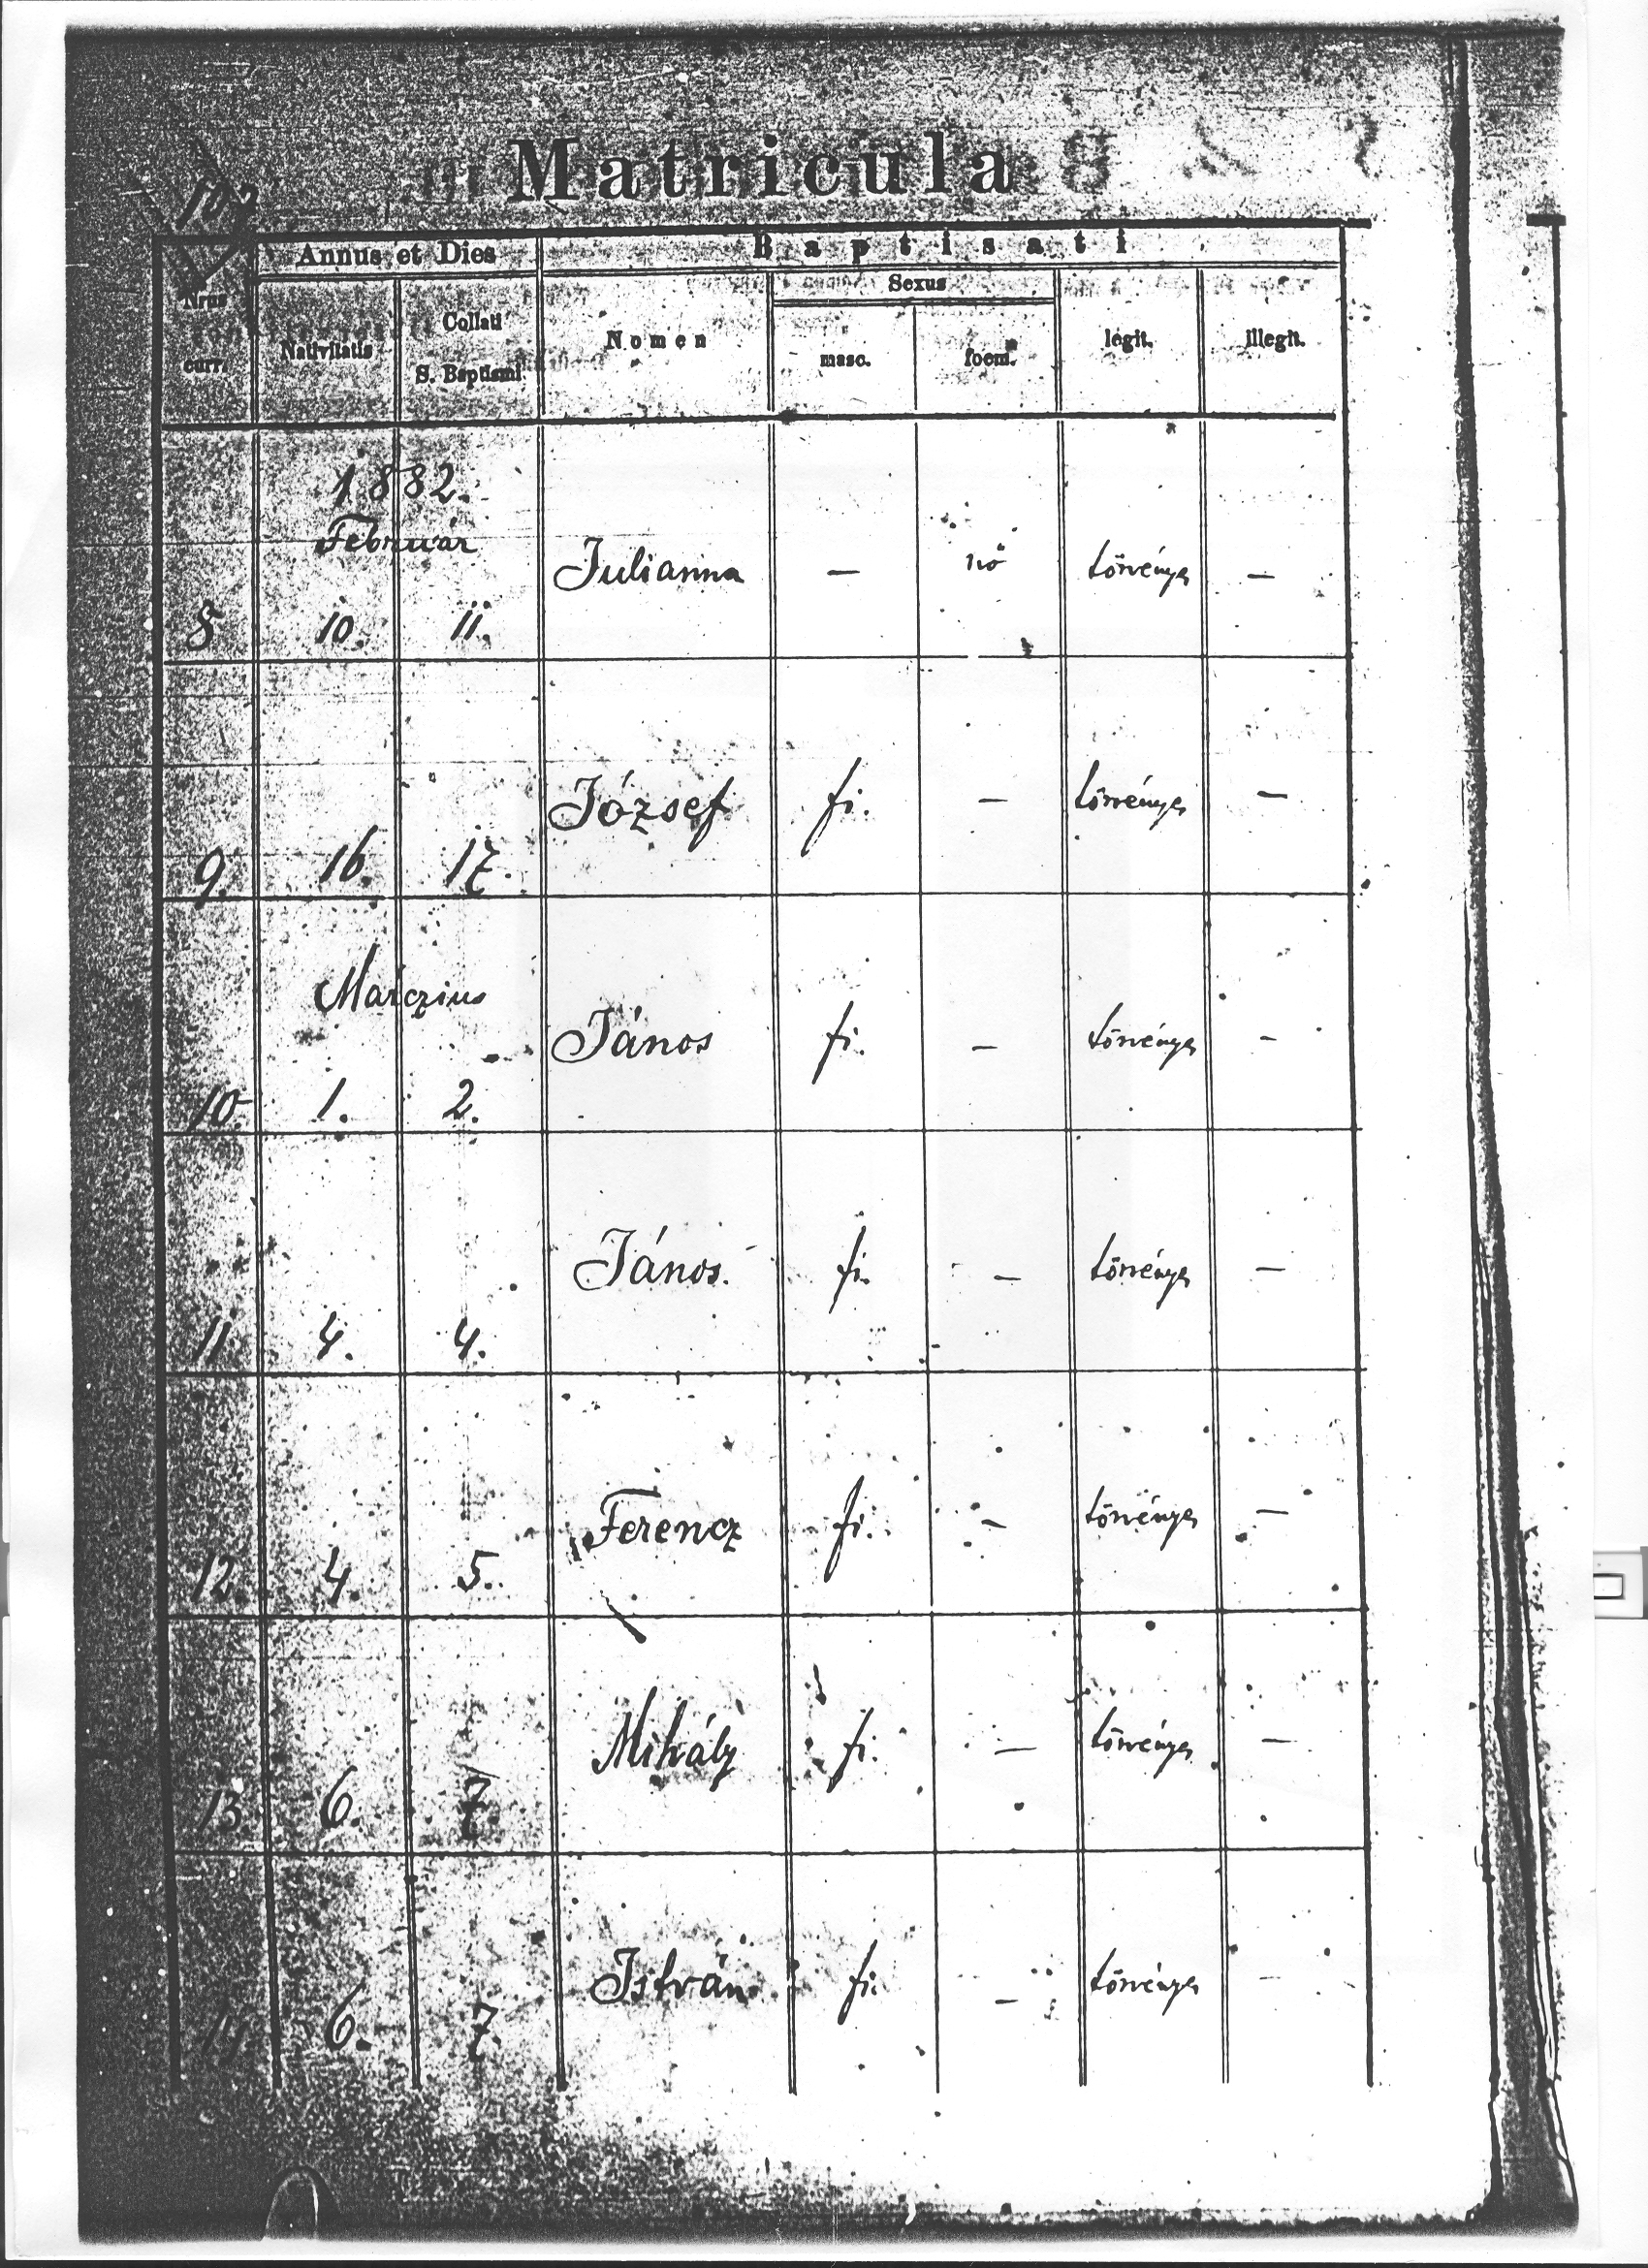 Matricula
Annus et Dies
Baptisati
Nrus curr.
Nativitatis
Collati S. Baptismi
Nomen
Sexus
masc.
foem.
legit.
illegit.
1882.
Február
8 10. 11. Julianna — nő törvényes —
9. 16. 17. József fi. — törvényes —
Márczius
10. 1. 2. János fi. — törvényes —
11 4. 4. János. fi. — törvényes —
12 4. 5. Ferencz fi. — törvényes —
13 6. 7. Mihály fi. — törvényes —
14 6. 7. István fi. — törvényes —